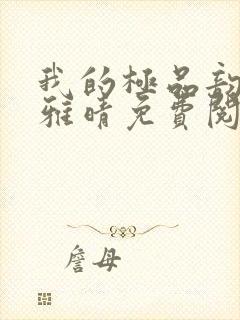 我的極品
雅晴免費閱
詹母